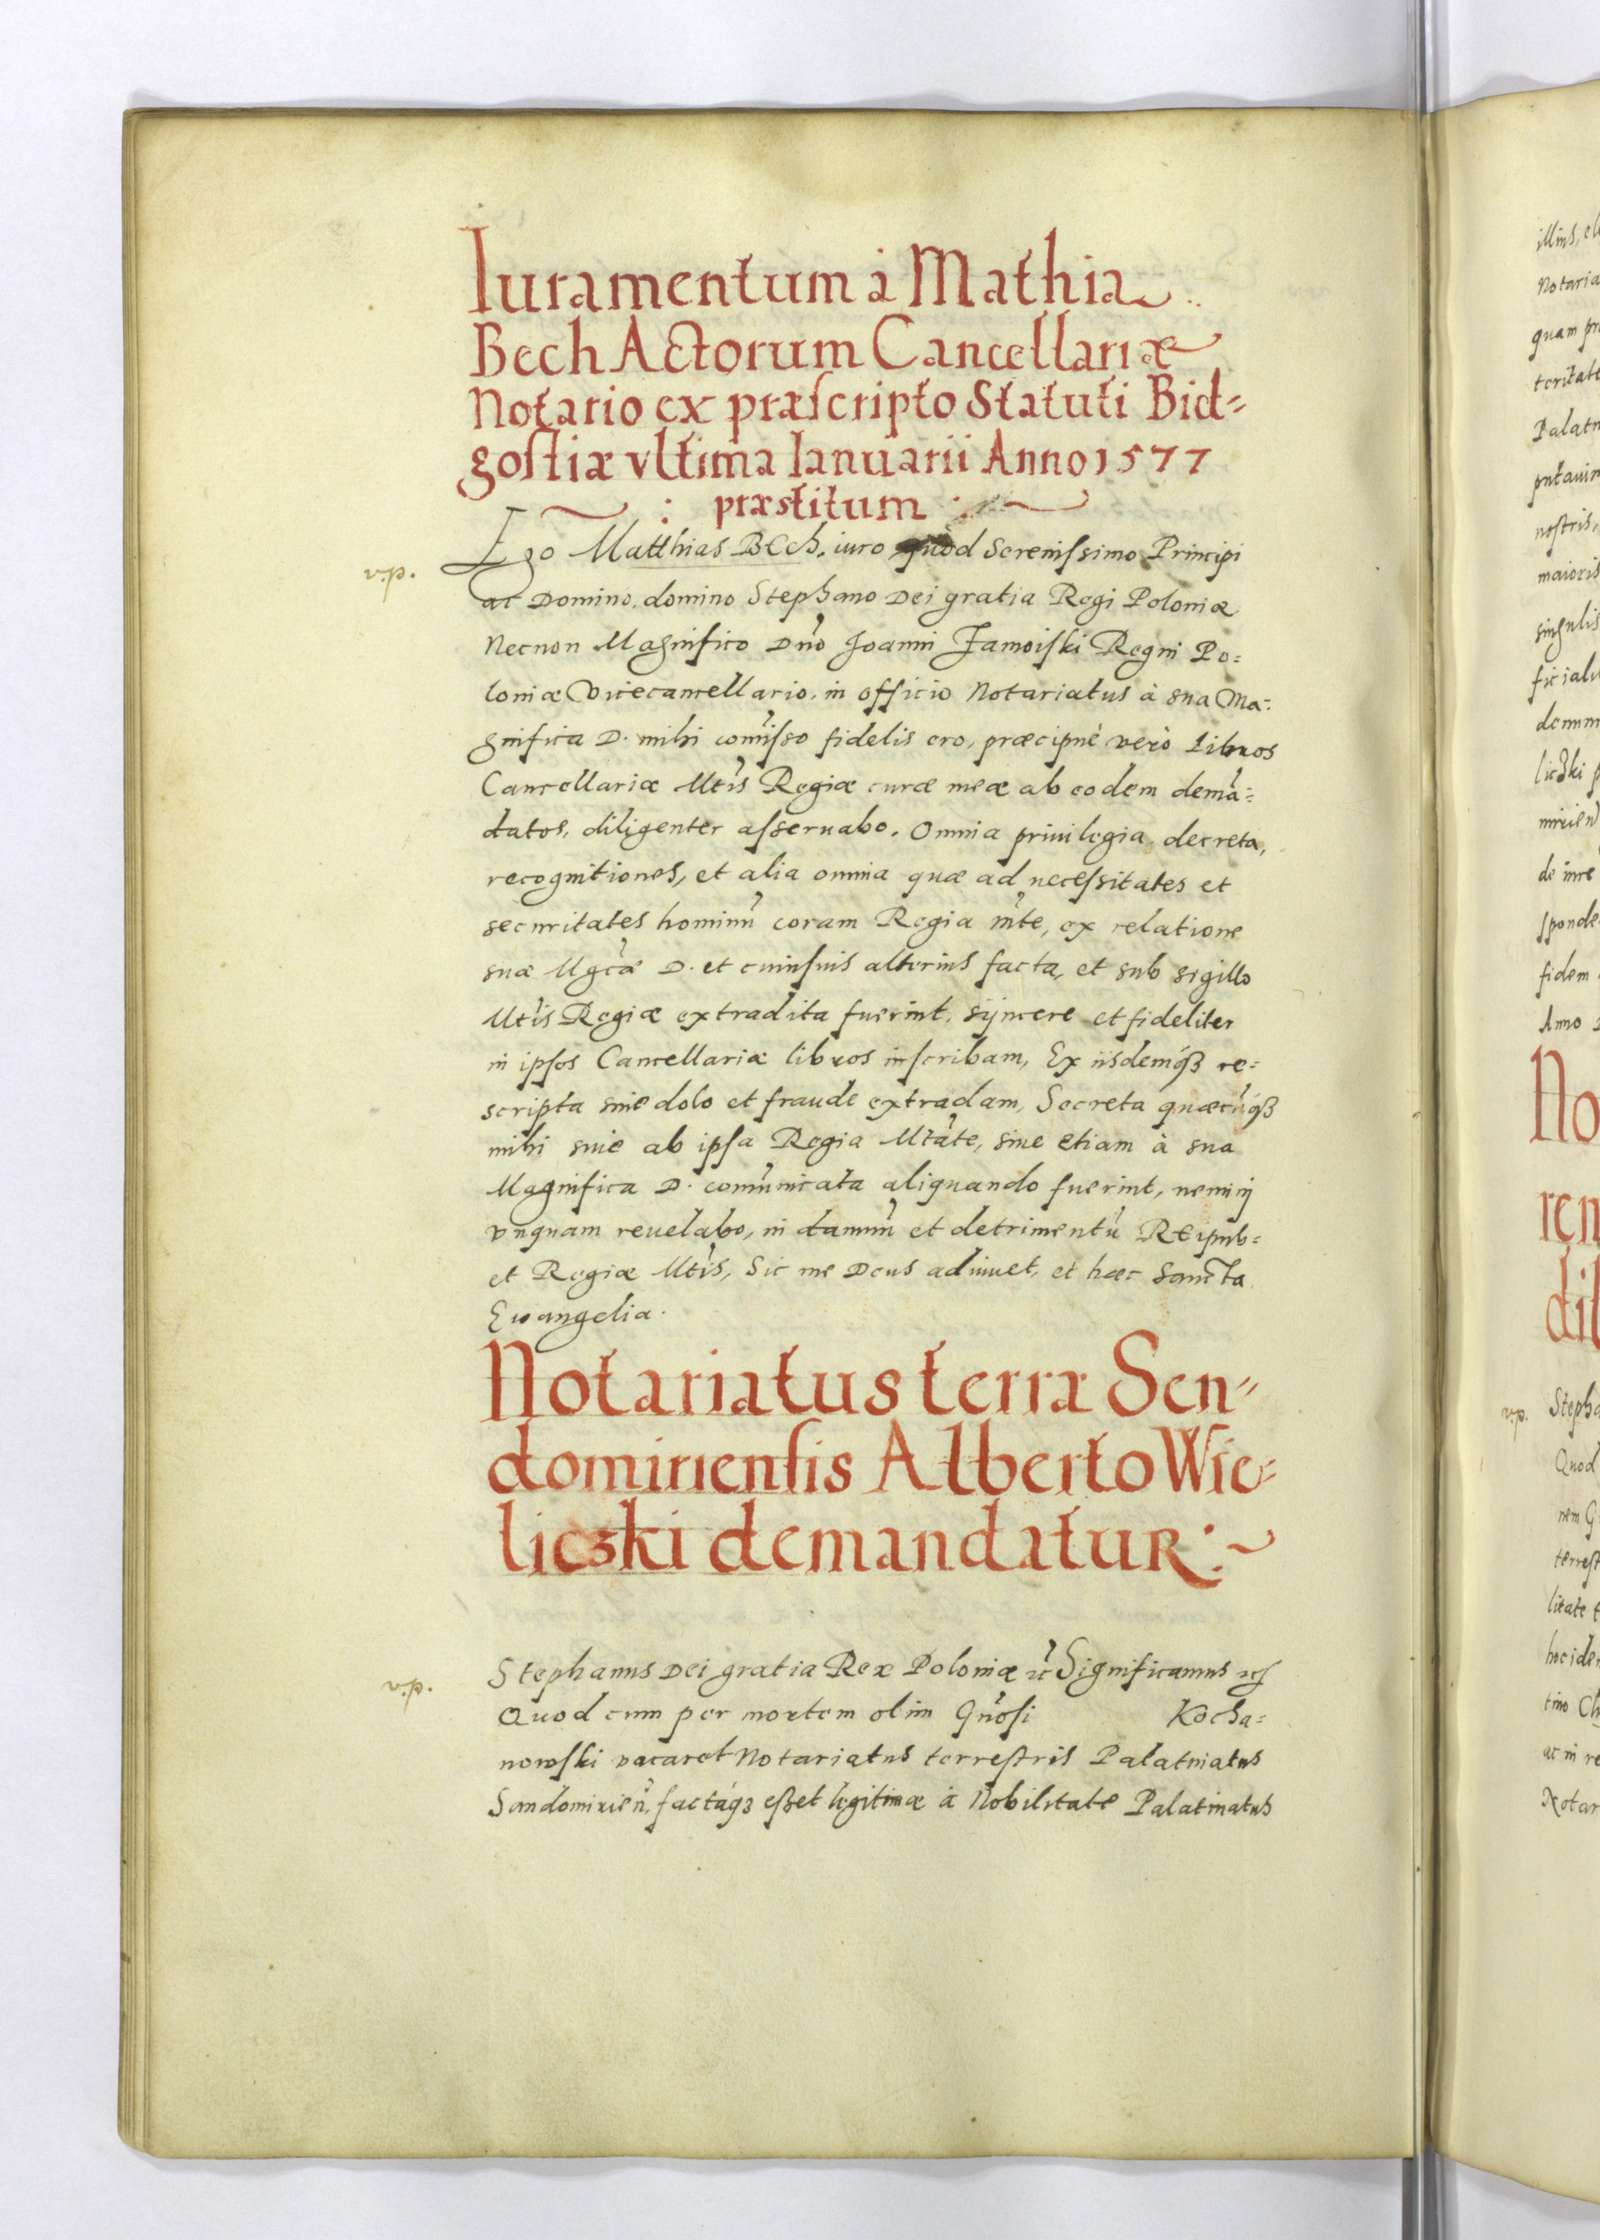 Iuramentum à Mathia
Bech Actorum Cancellariæ
Notario ex præscripto Statuti Bid-
gostiæ vltima Ianuarii Anno 1577
: præstitum :
v.p.
Ego Matthias Bech, iuro quòd Serenissimo Principi
ac Domino, domino Stephano Dei gratia Regi Poloniæ
Necnon Magnifico Dno Joanni Zamoiski Regni Po=
loniæ Vicecancellario, in officio Notariatus à sua Ma=
gnifica D. mihi comisso fidelis ero, præcipuè verò Libros
Cancellariæ Mtis Regiæ curæ meæ ab eodem demã=
datos, diligenter asseruabo. Omnia priuilegia, decreta,
recognitiones, et alia omnia quæ ad necessitates et
securitates hominũ coram Regia mte, ex relatione
suæ Mgcæ D. et cuiusuis alterius facta, et sub sigillo
Mtis Regiæ extradita fuerint, syncere et fideliter
in ipsos Cancellariæ libros inscribam, Ex iisdemqꝫ re=
scripta sine dolo et fraude extradam, Secreta quæcũqꝫ
mihi siue ab ipsa Regia Mtate, siue etiam à sua
Magnifica D. comunicata aliquando fuerint, nemini
vnquam reuelabo, in damnũ et detrimentũ Reipub=
et Regiæ Mtis, Sic me Deus adiuuet, et hæc Sancta
Ewangelia.
Notariatus terræ Sen-
domiriensis Alberto Wie-
liczki demandatur:
v.p.
Stephanus Dei gratia Rex Poloniæ etc Significamus etc
Quod cum per mortem olim Gnosi Kocha=
nowski vacaret Notariatus terrestris Palatinatus
Sandomirien, factaqꝫ esset legitimæ à Nobilitate Palatinatus